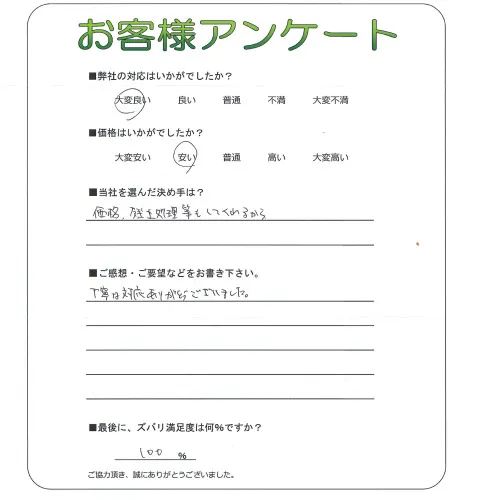 お客様アンケート
■弊社の対応はいかがでしたか？
大変良い 良い 普通 不満 大変不満
■価格はいかがでしたか？
大変安い 安い 普通 高い 大変高い
■当社を選んだ決め手は？
価格，残土処理等もしてくれるから
■ご感想・ご要望などをお書き下さい。
丁寧な対応ありがとうございました。
■最後に、ズバリ満足度は何%ですか？
100 %
ご協力頂き、誠にありがとうございました。